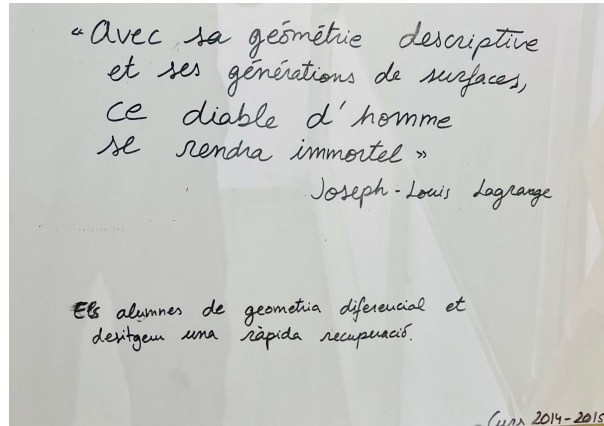 « Avec sa géométrie descriptive
et ses générations de surfaces,
ce diable d'homme
se rendra immortel »
Joseph-Louis Lagrange
Els alumnes de geometria diferencial et
desitgem una ràpida recuperació.
Curs 2014-2015